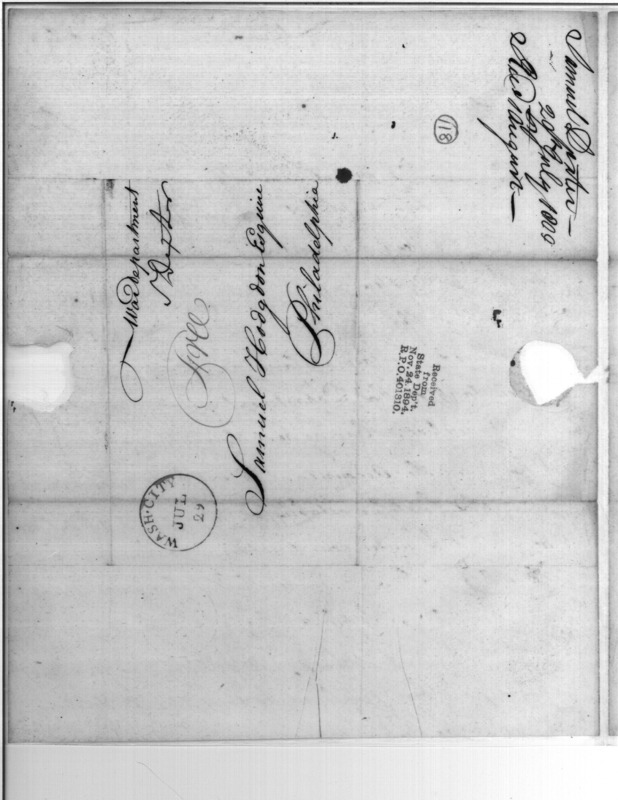 Samuel Dexter
29 July 1800
Rec'd 1 August
118
War department
S Dexter
Free
Samuel Hodgdon Esquire
Philadelphia
WASH. CITY
JUL
29
Received
from
State Dep't.
Nov. 24, 1894.
R.P.O, 401310.